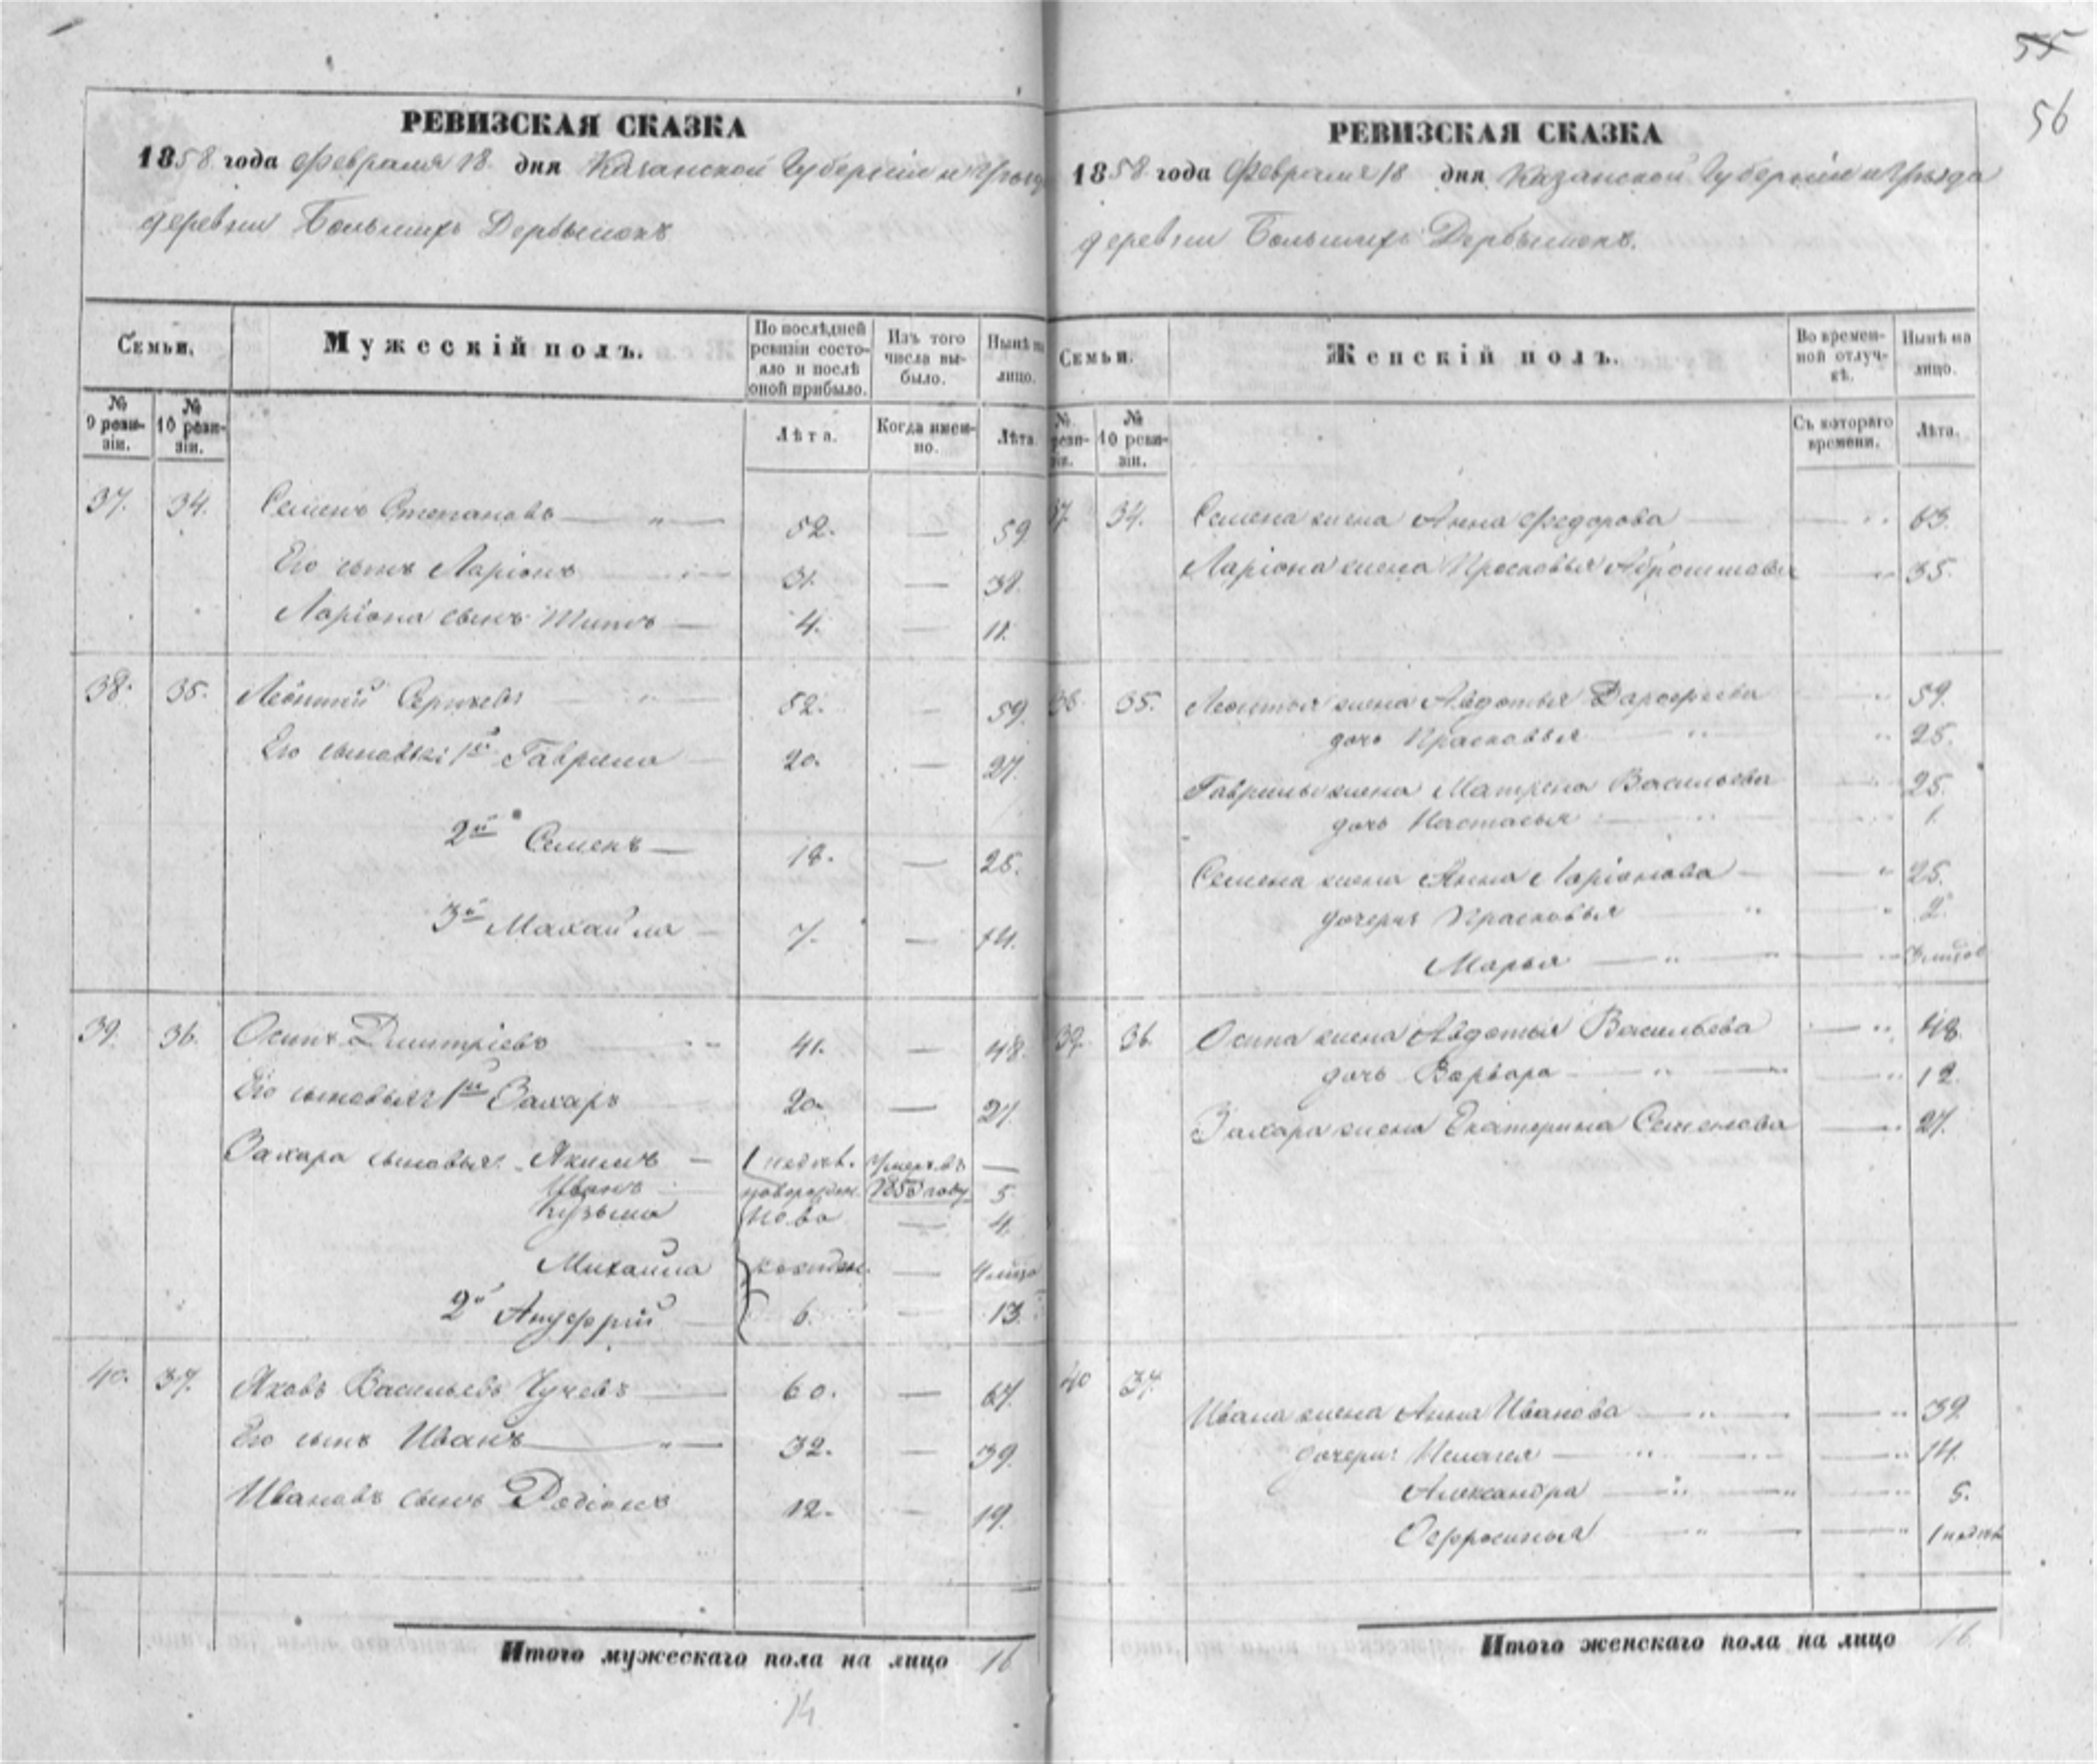 55
56
РЕВИЗСКАЯ СКАЗКА
1858 года Февраля 18 дня Казанской Губерніи и Уѣзда
деревни Большихъ Дербышекъ
Семьи.
Мужескій полъ.
По послѣдней ревизіи состояло и послѣ оной прибыло.
Изъ того числа выбыло.
Нынѣ на лицо.
№ 9 ревизіи.
№ 10 ревизіи.
Лѣта.
Когда именно.
Лѣта.
37. 34. Семенъ Степановъ — " — 52. — 59.
Его сынъ Ларіонъ 31. — 38.
Ларіона сынъ Титъ — 4. — 11.
38. 35. Леонтій Сергѣевъ 52. — 59.
Его сыновья 1й Гаврила 20. — 27.
2й Семенъ — 18. — 25.
3й Михайла — 7. — 14.
39. 36. Осипъ Дмитріевъ 41. — 48.
Его сыновья: 1й Захаръ 20. — 27.
Захара сыновья: Якимъ — 1 недѣл. Умеръ въ —
Иванъ новорожден. 1850 году 5.
Кузьма ново — 4.
Михайла рожден. — 4 мѣся
2й Ануфрій 6. — 13.
40. 37. Яковъ Васильевъ Чучевъ — 60. — 67.
Его сынъ Иванъ — " — 32. — 39.
Ивановъ сынъ Родіонъ 12. — 19.
Итого мужескаго пола на лицо 16
14
РЕВИЗСКАЯ СКАЗКА
1858 года Февраля 18 дня Казанской Губерніи и Уѣзда
деревни Большихъ Дербышекъ.
Семьи.
Женскій полъ.
Во временной отлучкѣ.
Нынѣ на лицо.
№ реви- зіи.
№ 10 ревизіи.
Съ котораго времени.
Лѣта.
37. 34. Семена жена Анна Федорова — " 63.
Ларіона жена Просковья Аброшимова — " 35.
38. 35. Леонтья жена Авдотья — " 59.
дочь Прасковья " 25.
Гаврилы жена Матрена Васильева — " 25.
дочь Настасья 1.
Семена жена Анна Ларіонова — " 25.
дочери: Прасковья " 2.
Марья — " — " мѣсяц
39. 36. Осипа жена Авдотья Васильева — " 48.
дочь Варвара — " — " 12.
Захара жена Екатерина Семенова — " 27.
40 37. Ивана жена Анна Иванова — " — " 39.
дочери: Пелагея — " — " 14.
Александра — " — " 5.
Офросинья " — " 1 недѣл
Итого женскаго пола на лицо 16.